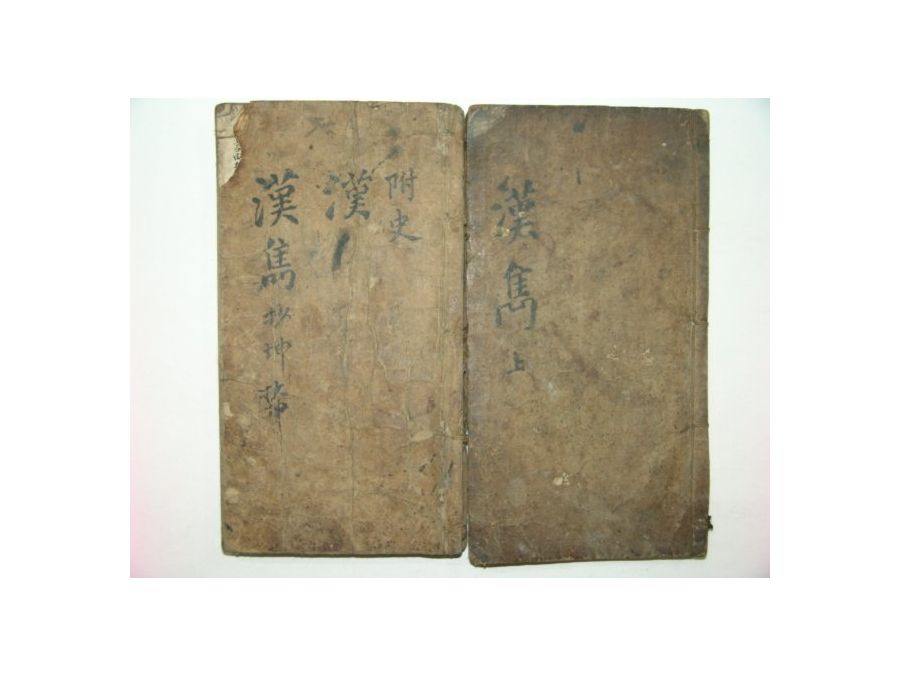 漢雋
上
附史
漢
漢雋抄坤